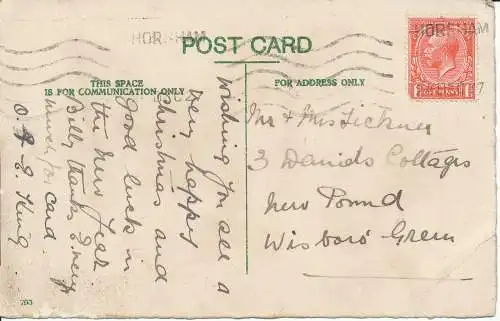 HORSHAM
HORSHAM
POST CARD
THIS SPACE
IS FOR COMMUNICATION ONLY
FOR ADDRESS ONLY
wishing you all a
very happy
Christmas and
good luck in
the New Year
Billy thanks
much for card.
Mr & Mrs Tickner
3 Daniels Cottages
New Pound
Wisboro' Green
293